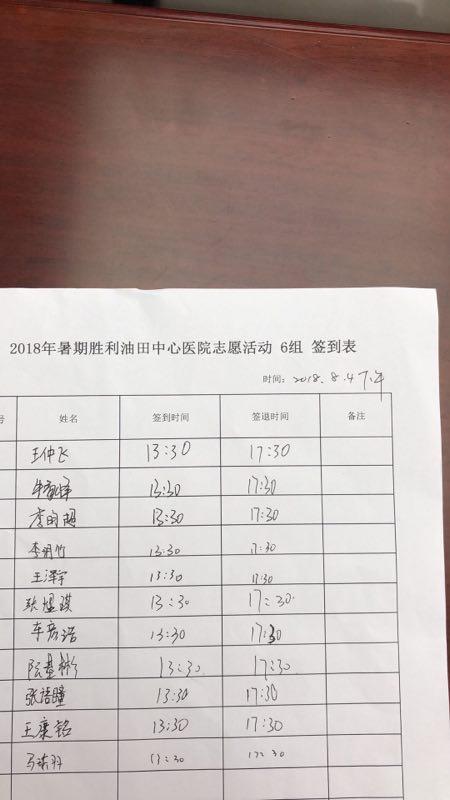 2018年暑期胜利油田中心医院志愿活动 6组 签到表
时间：2018.8.4下午
号 姓名 签到时间 签退时间 备注
王仲飞 13:30 17:30
13:30 17:30
13:30 17:30
李明竹 13:30 17:30
王泽宇 13:30 17:30
张煜琪 13:30 17:30
车彦浩 13:30 17:30
阮基彬 13:30 17:30
张语瞳 13:30 17:30
王康铭 13:30 17:30
13:30 17:30